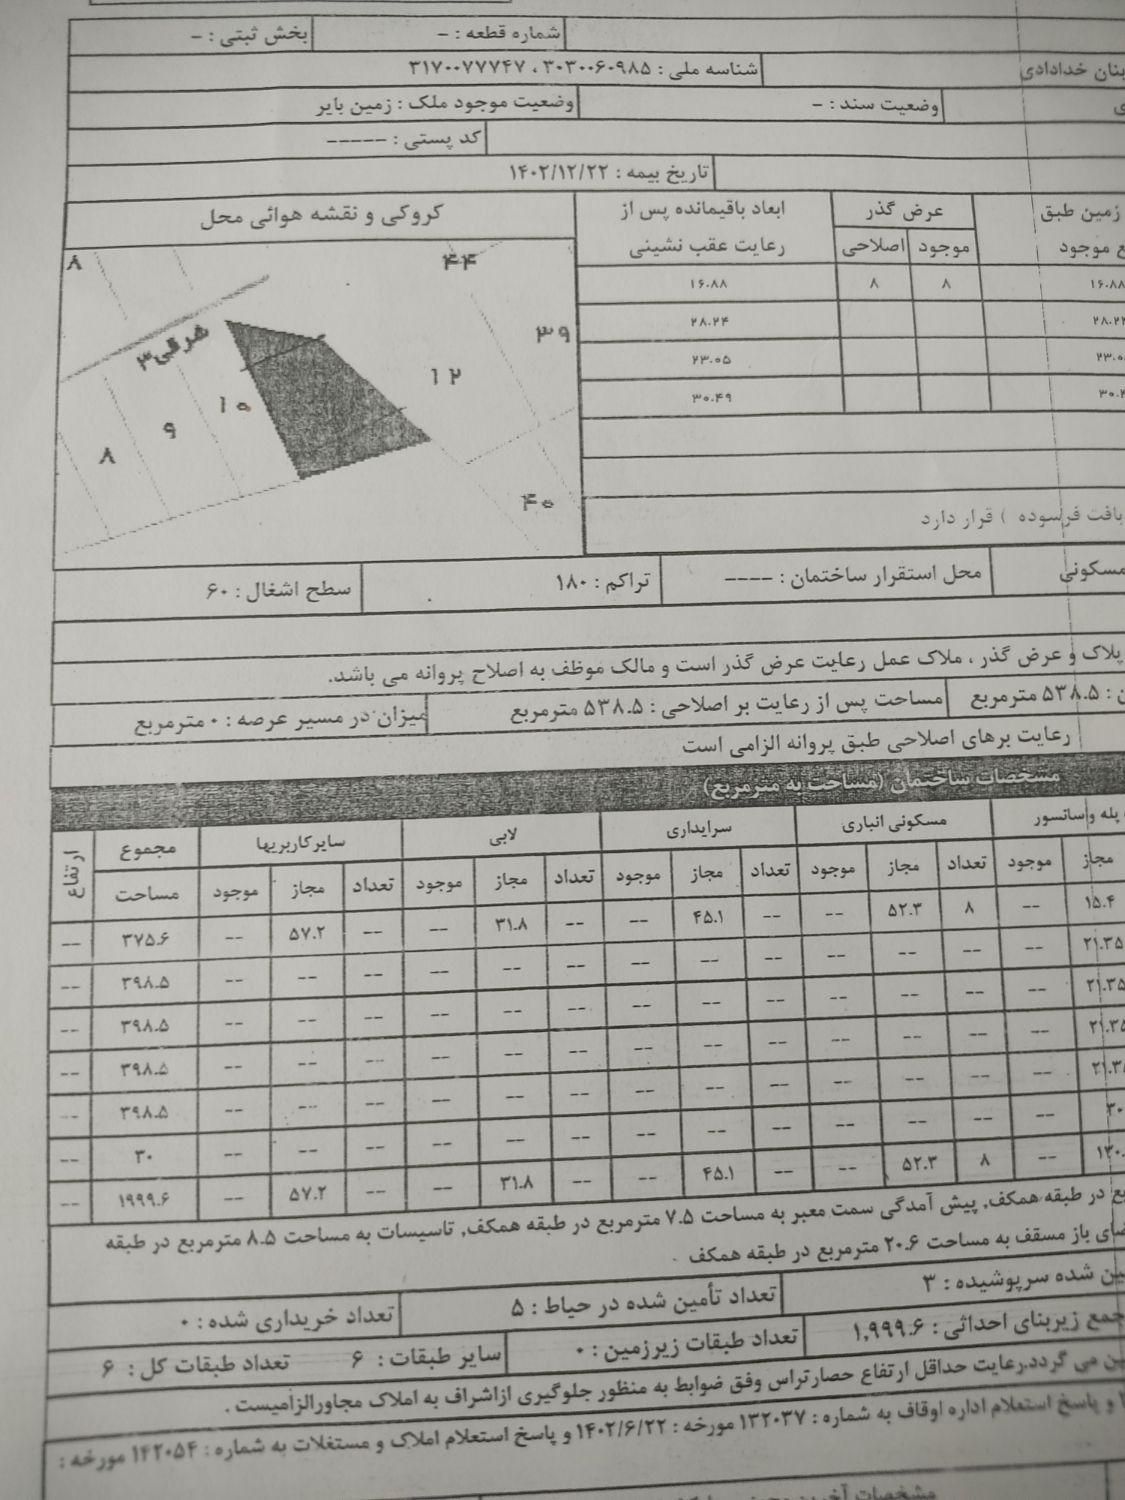 شماره قطعه : - بخش ثبتی : -
بنان خدادادی شناسه ملی : ۳۰۳۰۰۶۰۹۸۵ ، ۳۱۷۰۰۷۷۷۴۷
وضعیت سند : - وضعیت موجود ملک : زمین بایر
کد پستی : -----
تاریخ بیمه : ۱۴۰۲/۱۲/۲۲
زمین طبق عرض گذر ابعاد باقیمانده پس از کروکی و نقشه هوائی محل
موجود موجود اصلاحی رعایت عقب نشینی
۱۶.۸۸ ۸ ۸ ۱۶.۸۸
۲۸.۲۴ ۲۸.۲۴
۲۳.۰۵ ۲۳.۰۵
۳۰.۴۹
۸ ۴۴
شرقی۳ ۳۹
۱۲
۱۰
۹
۸
۴۰
بافت فرسوده ) قرار دارد
مسکونی محل استقرار ساختمان : ---- تراکم : ۱۸۰ سطح اشغال : ۶۰
پلاک و عرض گذر ، ملاک عمل رعایت عرض گذر است و مالک موظف به اصلاح پروانه می باشد.
: ۵۳۸.۵ مترمربع مساحت پس از رعایت بر اصلاحی : ۵۳۸.۵ مترمربع میزان در مسیر عرصه : ۰ مترمربع
رعایت برهای اصلاحی طبق پروانه الزامی است
مشخصات ساختمان (مساحت به مترمربع)
پله و آسانسور مسکونی انباری سرایداری لابی سایرکاربریها مجموع ارتفاع
مجاز موجود تعداد مجاز موجود تعداد مجاز موجود تعداد مجاز موجود تعداد مجاز موجود مساحت
۱۵.۴ -- ۸ ۵۲.۳ -- -- ۴۵.۱ -- -- ۳۱.۸ -- -- ۵۷.۲ -- ۳۷۵.۶ --
۲۱.۳۵ -- -- -- -- -- -- -- -- -- -- -- -- -- ۳۹۸.۵ --
۲۱.۳۵ -- -- -- -- -- -- -- -- -- -- -- -- -- ۳۹۸.۵ --
۲۱.۳۵ -- -- -- -- -- -- -- -- -- -- -- -- -- ۳۹۸.۵ --
-- -- -- -- -- -- -- -- -- -- -- -- -- ۳۹۸.۵ --
-- -- -- -- -- -- -- -- -- -- -- -- -- ۳۰ --
-- ۸ ۵۲.۳ -- -- ۴۵.۱ -- -- ۳۱.۸ -- -- ۵۷.۲ -- ۱۹۹۹.۶ --
در طبقه همکف, پیش آمدگی سمت معبر به مساحت ۷.۵ مترمربع در طبقه همکف, تاسیسات به مساحت ۸.۵ مترمربع در طبقه
باز مسقف به مساحت ۲۰.۶ مترمربع در طبقه همکف .
شده سرپوشیده : ۳ تعداد تأمین شده در حیاط : ۵ تعداد خریداری شده : ۰
جمع زیربنای احداثی : ۱,۹۹۹.۶ تعداد طبقات زیرزمین : ۰ سایر طبقات : ۶ تعداد طبقات کل : ۶
می گردد.رعایت حداقل ارتفاع حصارتراس وفق ضوابط به منظور جلوگیری ازاشراف به املاک مجاورالزامیست .
و پاسخ استعلام اداره اوقاف به شماره : ۱۳۲۰۳۷ مورخه : ۱۴۰۲/۶/۲۲ و پاسخ استعلام املاک و مستغلات به شماره : ۱۴۲۰۵۴ مورخه :